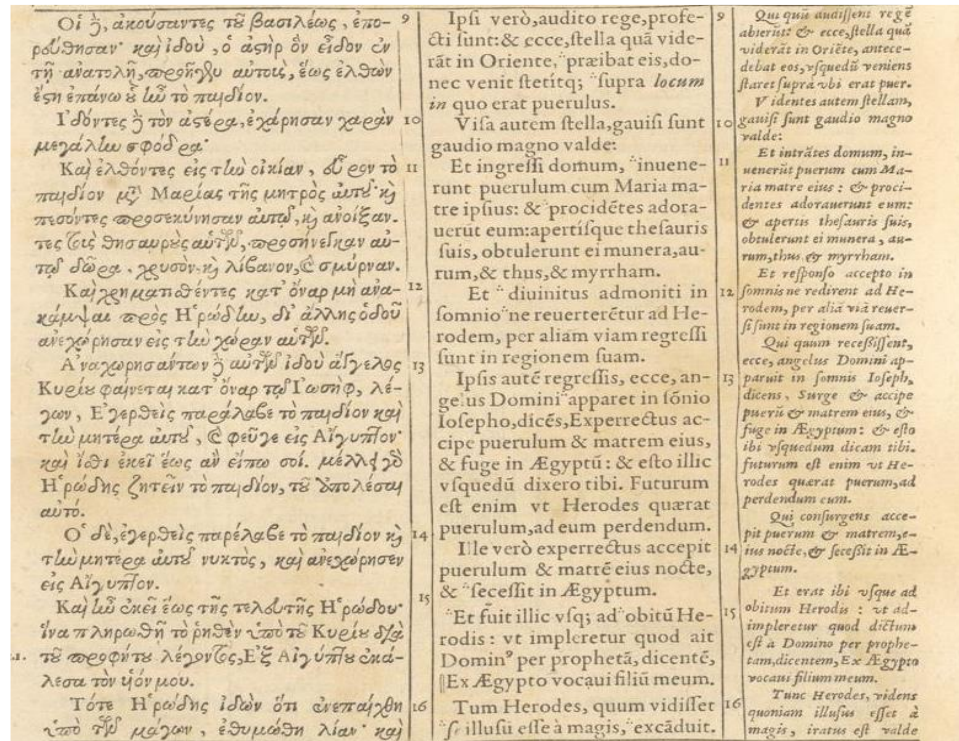 Οἱ δὲ, ἀκούσαντες τοῦ βασιλέως, ἐπο- 9
ρεύθησαν· καὶ ἰδού, ὁ ἀστὴρ ὃν εἶδον ἐν
τῇ ἀνατολῇ, προῆγεν αὐτούς, ἕως ἐλθὼν
ἔστη ἐπάνω οὗ ἦν τὸ παιδίον.
Ἰδόντες δὲ τὸν ἀστέρα, ἐχάρησαν χαρὰν 10
μεγάλην σφόδρα·
Καὶ ἐλθόντες εἰς τὴν οἰκίαν, εὗρον τὸ 11
παιδίον μετὰ Μαρίας τῆς μητρὸς αὐτοῦ· καὶ
πεσόντες προσεκύνησαν αὐτῷ, καὶ ἀνοίξαν-
τες τοὺς θησαυροὺς αὑτῶν, προσήνεγκαν αὐ-
τῷ δῶρα, χρυσὸν, καὶ λίβανον, καὶ σμύρναν.
Καὶ χρηματισθέντες κατ' ὄναρ μὴ ἀνα- 12
κάμψαι πρὸς Ἡρώδην, δι' ἄλλης ὁδοῦ
ἀνεχώρησαν εἰς τὴν χώραν αὑτῶν.
Ἀναχωρησάντων δὲ αὐτῶν ἰδοὺ ἄγγελος 13
Κυρίου φαίνεται κατ' ὄναρ τῷ Ἰωσὴφ, λέ-
γων, Ἐγερθεὶς παράλαβε τὸ παιδίον καὶ
τὴν μητέρα αὐτοῦ, καὶ φεῦγε εἰς Αἴγυπτον·
καὶ ἴσθι ἐκεῖ ἕως ἂν εἴπω σοί. μέλλει γὰρ
Ἡρώδης ζητεῖν τὸ παιδίον, τοῦ ἀπολέσαι
αὐτό.
Ὁ δὲ, ἐγερθεὶς παρέλαβε τὸ παιδίον καὶ 14
τὴν μητέρα αὐτοῦ νυκτὸς, καὶ ἀνεχώρησεν
εἰς Αἴγυπτον.
Καὶ ἦν ἐκεῖ ἕως τῆς τελευτῆς Ἡρώδου· 15
ἵνα πληρωθῇ τὸ ῥηθὲν ὑπὸ τοῦ Κυρίου διὰ
τοῦ προφήτου λέγοντος, Ἐξ Αἰγύπτου ἐκά-
λεσα τὸν υἱόν μου.
Τότε Ἡρώδης ἰδὼν ὅτι ἐνεπαίχθη 16
ὑπὸ τῶν μάγων, ἐθυμώθη λίαν· καὶ
Ipſi verò, audito rege, profe- 9
cti ſunt: & ecce, ſtella quã vide-
rãt in Oriente, præibat eis, do-
nec venit ſtetitq; ſupra locum
in quo erat puerulus.
Viſa autem ſtella, gauiſi ſunt 10
gaudio magno valde:
Et ingreſſi domum, inuene- 11
runt puerulum cum Maria ma-
tre ipſius: & procidẽtes adora-
uerũt eum: apertiſque theſauris
ſuis, obtulerunt ei munera, au-
rum, & thus, & myrrham.
Et diuinitus admoniti in 12
ſomnio ne reuerterẽtur ad He-
rodem, per aliam viam regreſſi
ſunt in regionem ſuam.
Ipſis autẽ regreſſis, ecce, an- 13
gelus Domini apparet in ſõnio
Ioſepho, dicẽs, Experrectus ac-
cipe puerulum & matrem eius,
& fuge in Ægyptũ: & eſto illic
vſquedũ dixero tibi. Futurum
eſt enim vt Herodes quærat
puerulum, ad eum perdendum.
Ille verò experrectus accepit 14
puerulum & matrẽ eius nocte,
& ſeceſſit in Ægyptum.
Et fuit illic vſq; ad obitũ He- 15
rodis: vt impleretur quod ait
Dominꝰ per prophetã, dicentẽ,
‖Ex Ægypto vocaui filiũ meum.
Tum Herodes, quum vidiſſet 16
ſe illuſũ eſſe à magis, excãduit.
Qui quũ audiſſent regẽ
abierũt: & ecce, ſtella quã
viderãt in Oriẽte, antece-
debat eos, vſquedũ veniens
ſtaret ſupra vbi erat puer.
Videntes autem ſtellam,
gauiſi ſunt gaudio magno
valde:
Et intrãtes domum, in-
uenerũt puerum cum Ma-
ria matre eius: & proci-
dentes adorauerunt eum:
& apertis theſauris ſuis,
obtulerunt ei munera, au-
rum, thus, & myrrham.
Et reſponſo accepto in
ſomnis ne redirent ad He-
rodem, per aliã viã reuer-
ſi ſunt in regionem ſuam.
Qui quum receſsiſſent,
ecce, angelus Domini ap-
paruit in ſomnis Ioſeph,
dicens, Surge & accipe
puerũ & matrem eius, &
fuge in Ægyptum: & eſto
ibi vſquedum dicam tibi.
futurum eſt enim vt He-
rodes quærat puerum, ad
perdendum eum.
Qui conſurgens acce-
pit puerum & matrem, e-
ius nocte, & ſeceſsit in Æ-
gyptum.
Et erat ibi vſque ad
obitum Herodis: vt ad-
impleretur quod dictum
eſt à Domino per prophe-
tam, dicentem, Ex Ægypto
vocaui filium meum.
Tunc Herodes, videns
quoniam illuſus eſſet à
magis, iratus eſt valde